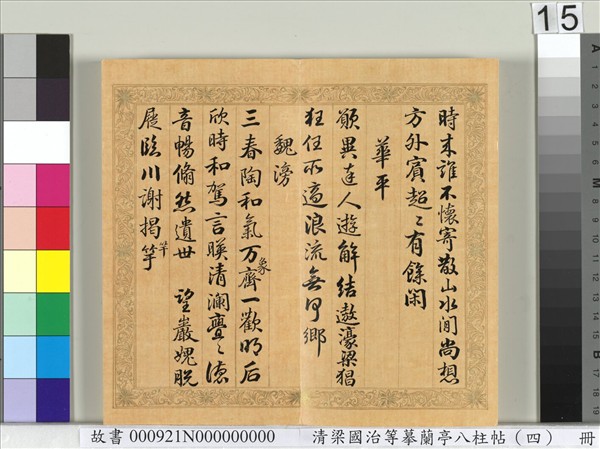 15
時来誰不懷寄散山水閒尚想
方外賓超〻有餘閑
華平
願異達人遊解結遨濠梁狷
狂任所適浪流無何鄉
魏滂
三春陶和氣万齊一歡明后
象
欣時和駕言暎清瀾亹〻德
音暢脩然遺世 望巖愧脫
屣臨川謝揭竿
竿
故書 000921N000000000 清梁國治等摹蘭亭八柱帖（四） 冊